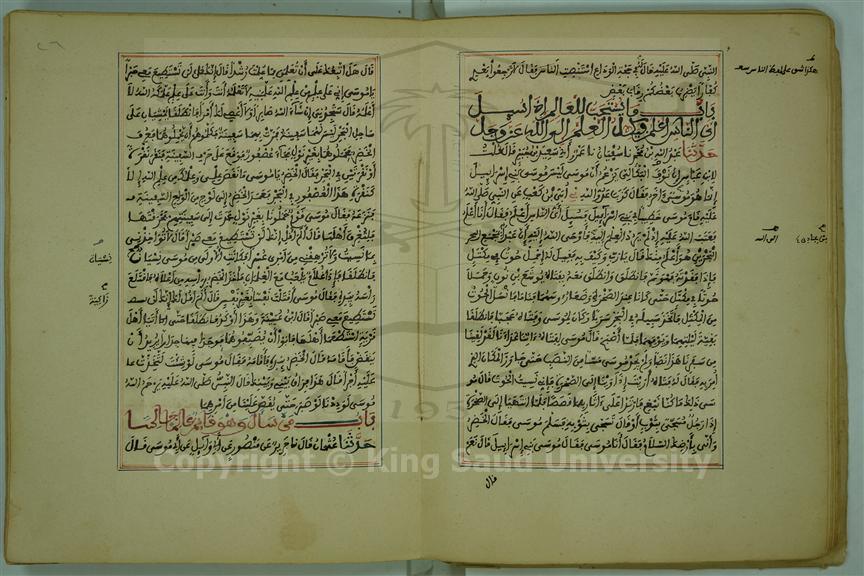 النبي صلى الله عليه قال له في حجة الوداع استنصت الناس فقال لا ترجعوا بعدي
كفارا يضرب بعضكم رقاب بعض
باب ما يستحب للعالم اذا سئل
اي الناس اعلم فيكل العلم الى الله عز وجل
حدثنا عبد الله بن محمد نا سفيان نا عمرو اخبرني سعيد بن جبير قال قلت
لابن عباس ان نوفا البكالي يزعم ان موسى ليس موسى بني اسرائيل
انما هو موسى ءاخر فقال كذب عدو الله نا ابي بن كعب عن النبي صلى الله
عليه قام موسى خطيبا في بني اسراءيل فسيل اي الناس اعلم فقال انا اعلم
فعتب الله عليه اذ لم يرد العلم اليه فاوحى الله اليه ان عبدا من عبادي بمجمع البحرين
هو اعلم منك قال يا رب وكيف به فقيل له احمل حوتا في مكتل
فاذا فقدته فهو ثم فانطلق وانطلق معه بفتاه يوشع بن نون وحملا
حوتا في مكتل حتى كانا عند الصخرة وضعا رءوسهما فناما فانسل الحوت
من المكتل فاتخذ سبيله في البحر سربا وكان لموسى وفتاه عجبا فانطلقا
بقية ليلتهما ويومهما فلما اصبح قال موسى لفتاه ءاتنا غداءنا لقد لقينا
من سفرنا هذا نصبا ولم يجد موسى مسا من النصب حتى جاوز المكان الذي
امر به فقال له فتاه ارايت اذ اوينا الى الصخرة فاني نسيت الحوت قال مو
سى ذلك ما كنا نبغ فارتدا على ءاثارهما قصصا فلما انتهيا الى الصخرة
اذا رجل مسجى بثوب او قال تسجى بثوبه فسلم موسى فقال الخضر
وانى بارضك السلام فقال انا موسى فقال موسى بني اسراءيل قال نعم
قال
قال هل اتبعك على ان تعلمني مما علمت رشدا قال انك لن تستطيع معي صبرا
يا موسى اني على علم من علم الله علمنيه لا تعلمه انت وانت على علم علمكه الله لا
اعلمه قال ستجدني ان شاء الله صابرا ولا اعصي لك امرا فانطلقا يمشيان على
ساحل البحر ليس لهما سفينة فمرت بهما سفينة فكلموهم ان يحملوهما فعرف
الخضر فحملوهما بغير نول فجاء عصفور فوقع على حرف السفينة فنقر نقرة
او نقرتين في البحر فقال الخضر يا موسى ما نقص علمي وعلمك من علم الله الا
كنقرة هذا العصفور في البحر فعمد الخضر الى لوح من الواح السفينة
فنزعه فقال موسى قوم حملونا بغير نول عمدت الى سفينتهم فخرقتها
لتغرق اهلها قال الم اقل انك لن تستطيع معي صبرا قال لا تواخذني
بما نسيت ولا ترهقني من امري عسرا فكانت الاولى من موسى نسيانا
فانطلقا فاذا غلام يلعب مع الغلمان فاخذ الخضر براسه من اعلاه فاقتلع
راسه بيده فقال موسى اقتلت نفسا زكية بغير نفس قال الم اقل لك انك لن
تستطيع معي صبرا قال ابن عيينة وهذا اوكد فانطلقا حتى اذا اتيا اهل
قرية استطعما اهلها فابوا ان يضيفوهما فوجدا فيها جدارا يريد ان
ينقض فاقامه قال الخضر بيده فاقامه فقال موسى لو شئت لتخذت
عليه اجرا قال هذا فراق بيني وبينك قال النبي صلى الله عليه يرحم الله
موسى لوددنا لو صبر حتى يقص علينا من امرهما
باب من سال وهو قايم عالما جالسا
حدثنا عثمان قال نا جرير عن منصور عن ابي وايل عن ابي موسى قال